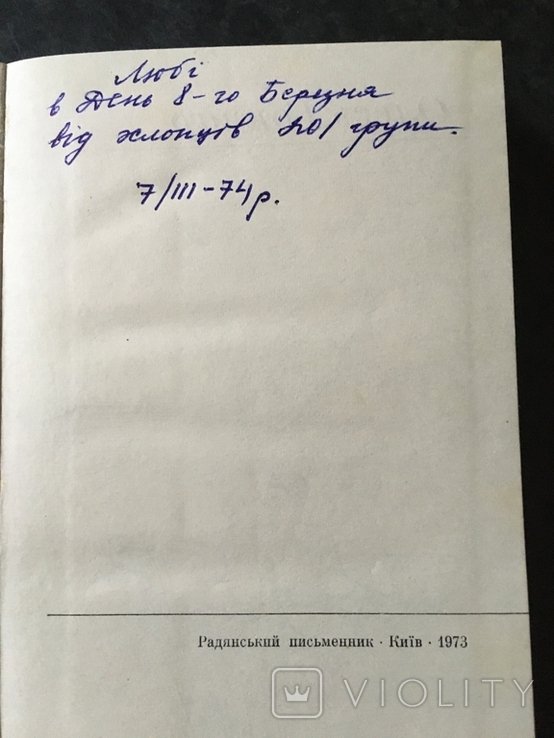 Любі
в День 8-го Березня
від хлопців 201 групи.
7/III-74 р.
Радянський письменник · Київ · 1973
VIOLITY